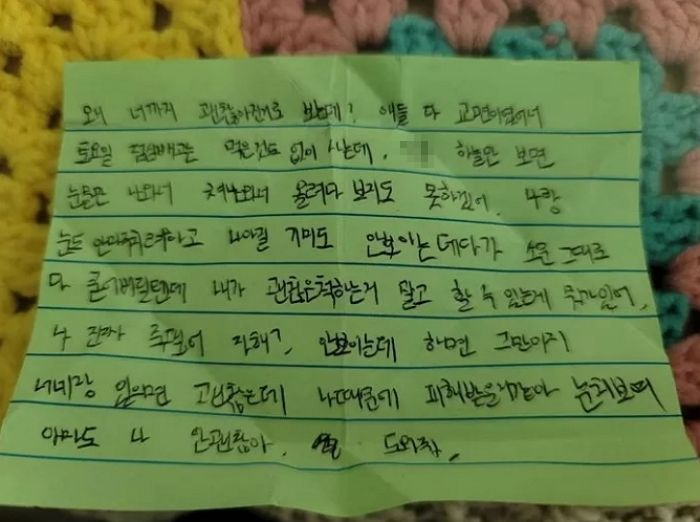 왜 너까지 괜찮아진거로 보는데? 애들 다 교묘해서
토요일 점심빼고는 먹은것도 없이 사는데, 하늘만 보면
눈물만 나와서 쳐나와서 올려다 보지도 못하겠어. 나랑
눈도 안마주치려하고 나아질 기미도 안보이는데다가 소문 그대로
다 믿어버릴텐데 내가 괜찮은척하는거 말고 할 수 있는게 뭐가있어,
나 진짜 죽었어 지해ㄱ, 안보이는데 하면 그만이지
너네랑 있으면 괜찮은데 나때문에 피해받을거같아 눈치보여
아마도 나 안괜찮아. 도와줘.